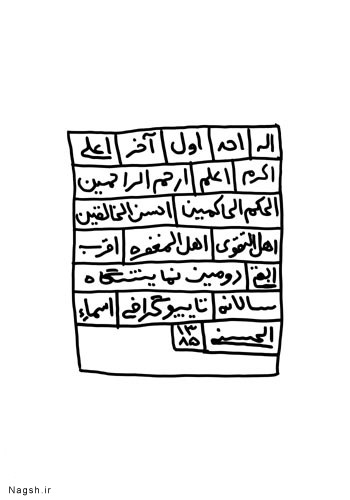 اله احد اول آخر اعلی
اکرم اعلم ارحم الراحمین
احکم الحاکمین احسن الخالقین
اهل التقوی اهل المغفره اقرب
ابقی دومین نمایشگاه
سالانه تایپوگرافی اسماء
الحسنی ۱۳
۸۵
Nagsh.ir